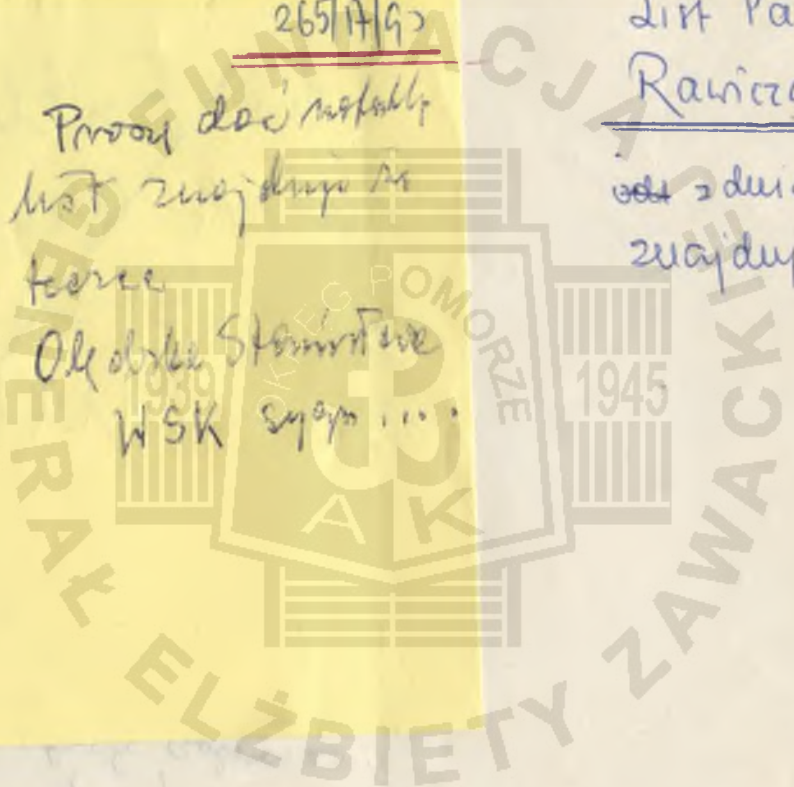 265/17/93
Proszę dać notatkę
list znajduje się
teczce
Olędzka Stanisława
WSK sygn ....
List Pa
Rawicza
z dnia
znajduj
FUNDACJA GENERAŁ ELŻBIETY ZAWACKIEJ
OKRĘG POMORZE
1939
1945
AK